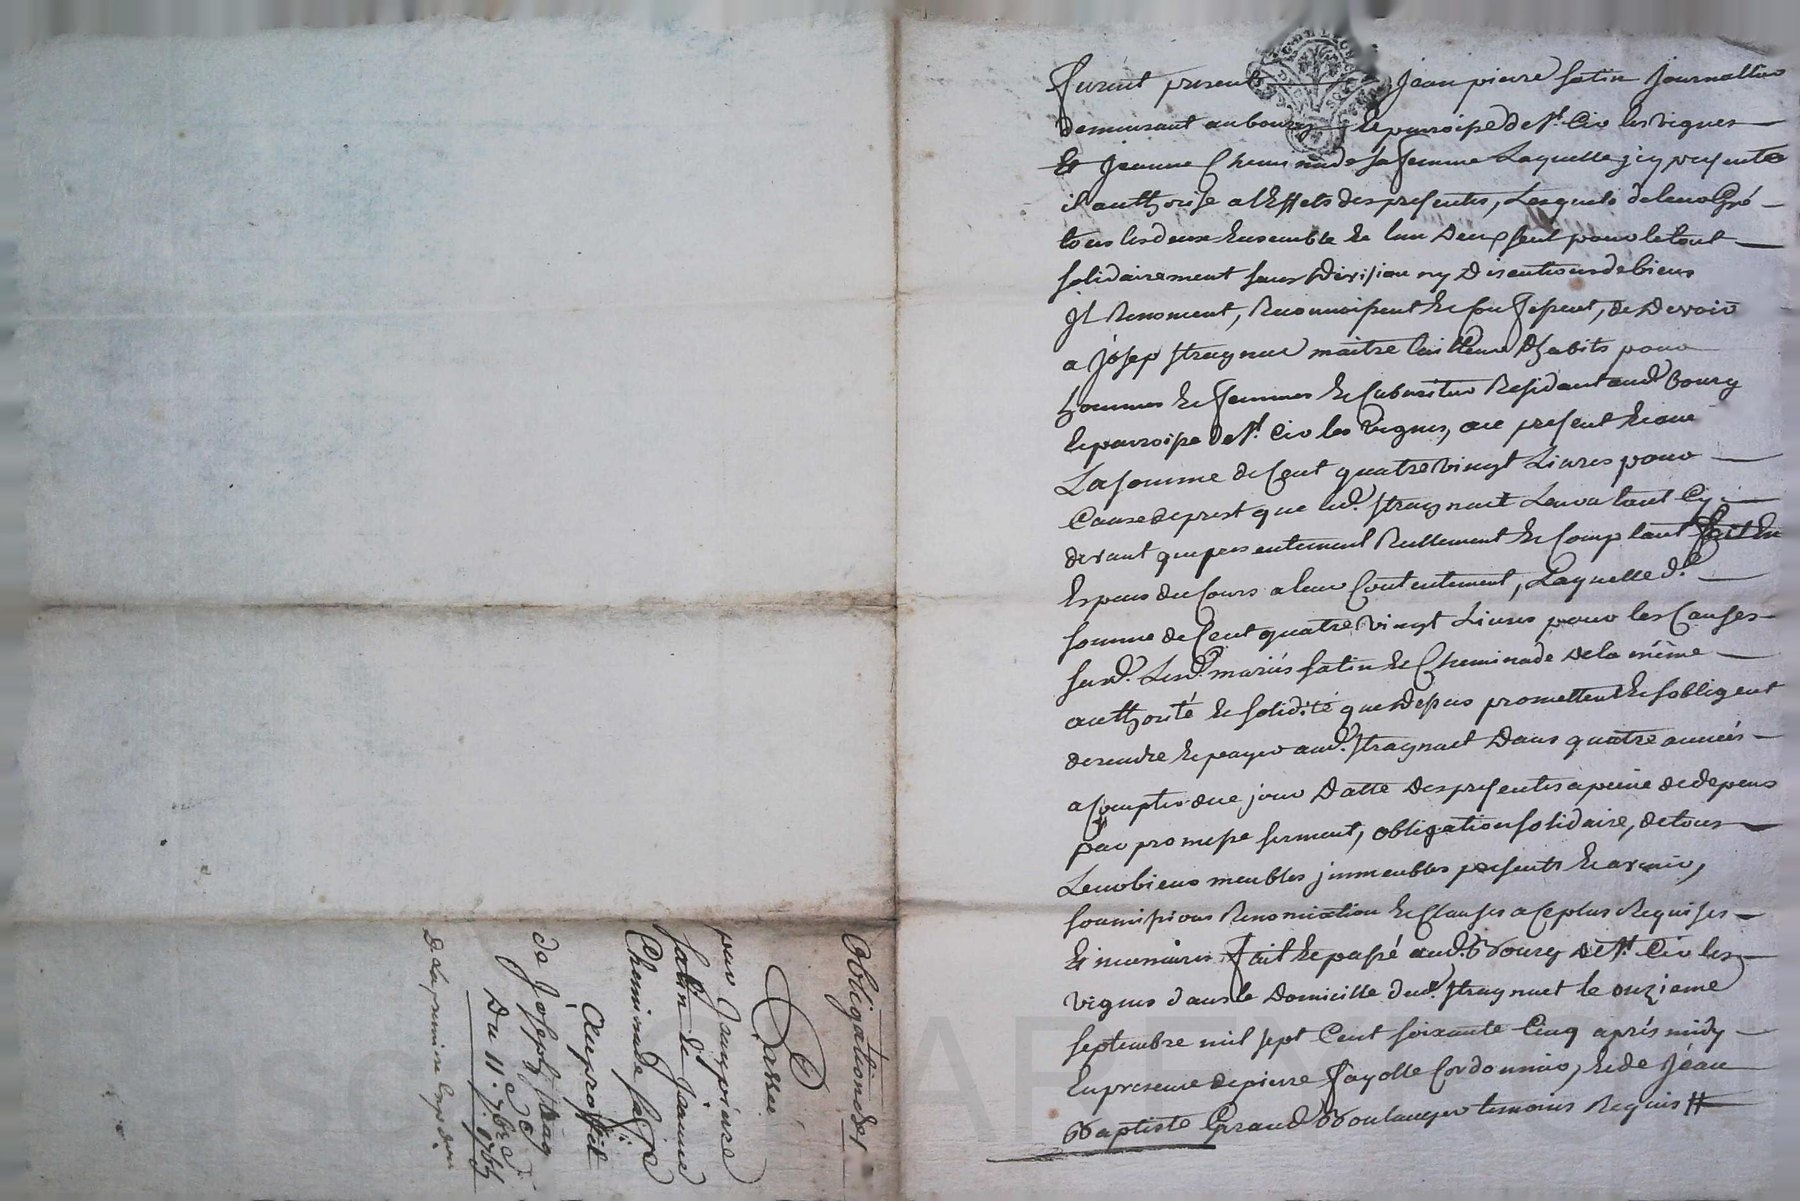 furent presents Jean pierre fatin Journallier
demeurant au bourg & parroisse de St. Cir les vignes
Et Jeanne Cheminade sa femme Laquelle jcy presente
il authorise a l'Effets des presentes, Lesquels de leur Gré
tous les deux Ensemble & lun Deux seul pour le tout
solidairement sans Division ny Discutions de biens
Jl Renoncent, Reconnoissent & Confessent, de Devoir
a Josep stragnat maitre tailleur D'habits pour
hommes & femmes & Cabaretier Residant aud. bourg
& parroisse de St. Cir les Vignes, present
La somme de Cent quatre vingt Livres pour
Cause de prest que led. stragnat Leur a tant Cy
devant que presentement Reellement & Comptant fait En
Especes du Cours a leur Contentement, Laquelle d.
somme de Cent quatre vingt Livres pour les Causes
susd. Lesd. mariés fatin & Cheminade De la même
authorité & solidité que Dessus promettent & sobligent
de rendre & payer aud. stragnat Dans quatre années
a Compter de ce jour Datte Des presentes a peine de depens
par promesse serment, obligation solidaire, de tous
Leur biens meubles jmmeubles presents & avenir,
soumissions Renonciation & Clauses a Ce plus Requises
Et necessaires fait & passé aud. Bourg De St. Cir les
vignes dans le Domicille dud. stragnat le onzieme
septembre mil sept Cent soixante Cinq après midy
En presence de pierre fayolle Cordonnier, & de Jéan
Baptiste Giraud Boulanger temoins Requis
Obligation de
Passée
par Jean pierre
fatin & Jeanne
Cheminade sa fe
Au proffit
de Joseph strag
Du 11. 7bre 1765